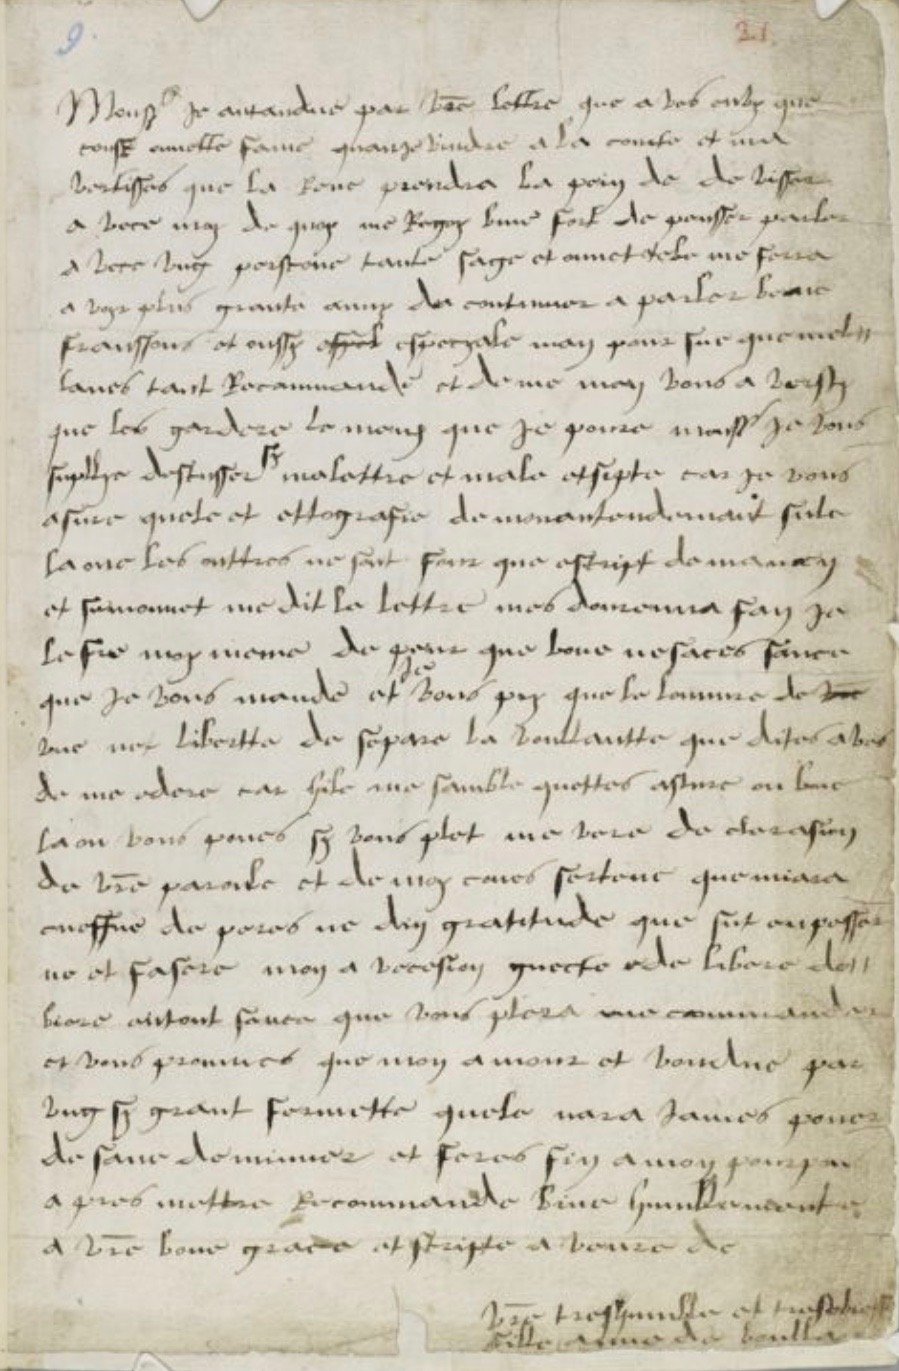 9.
21
Monsr Je antandue par vre lettre que a ves anvy que
tousse onnette fame quan Je vindre a la courte et ma
vertisses que la Rene prendra la pein de devisser
a vecc moy de quoy me Regoy bine fort de pensser parler
a vecc ung perscone tante sage et onnette cela me ferra
a voyr plus grante anvy de continuer a parler bene
franssais et aussy espel especyale man pour sue que melm
laves tant Recammande et de me main vous a versty
que les gardere le meuy que je poure monssr Je vous
suplye descusser sy ma lettre et male etsipte car Je vous
asure quele et ettografie de mon antendemant sule
la one les onttres ne sont faur que escript de ma main
et semonnet me dit la lettre mes demeura fan Je
le fre moy meme de peur que bone ne saces sance
que Je vous mande et Je vous pry que la lommire de vre
vue net libertte de separe la voullantte que dites aves
de me edere car hile me samble quettes asure ou bue
la ou vous poues sy vous plet me vere de clerasion
de vre parole et de moy coues sertene que miara
coueffne de peres ne din gratitude que sut en pesser
ne et fasere mon a vecesion quecte ede libere dett
biore autout sance que vous plera me commander
et vous promies que mon amour et vondue par
ung sy grant fermette quele nara James pouer
de sane deminuer et feres fin a mon pourpon
apres mettre Recommande bine humblemante
a vre bone grace et scripte a veure de
Vre treshumble et tresobiess
fille anna de boulla